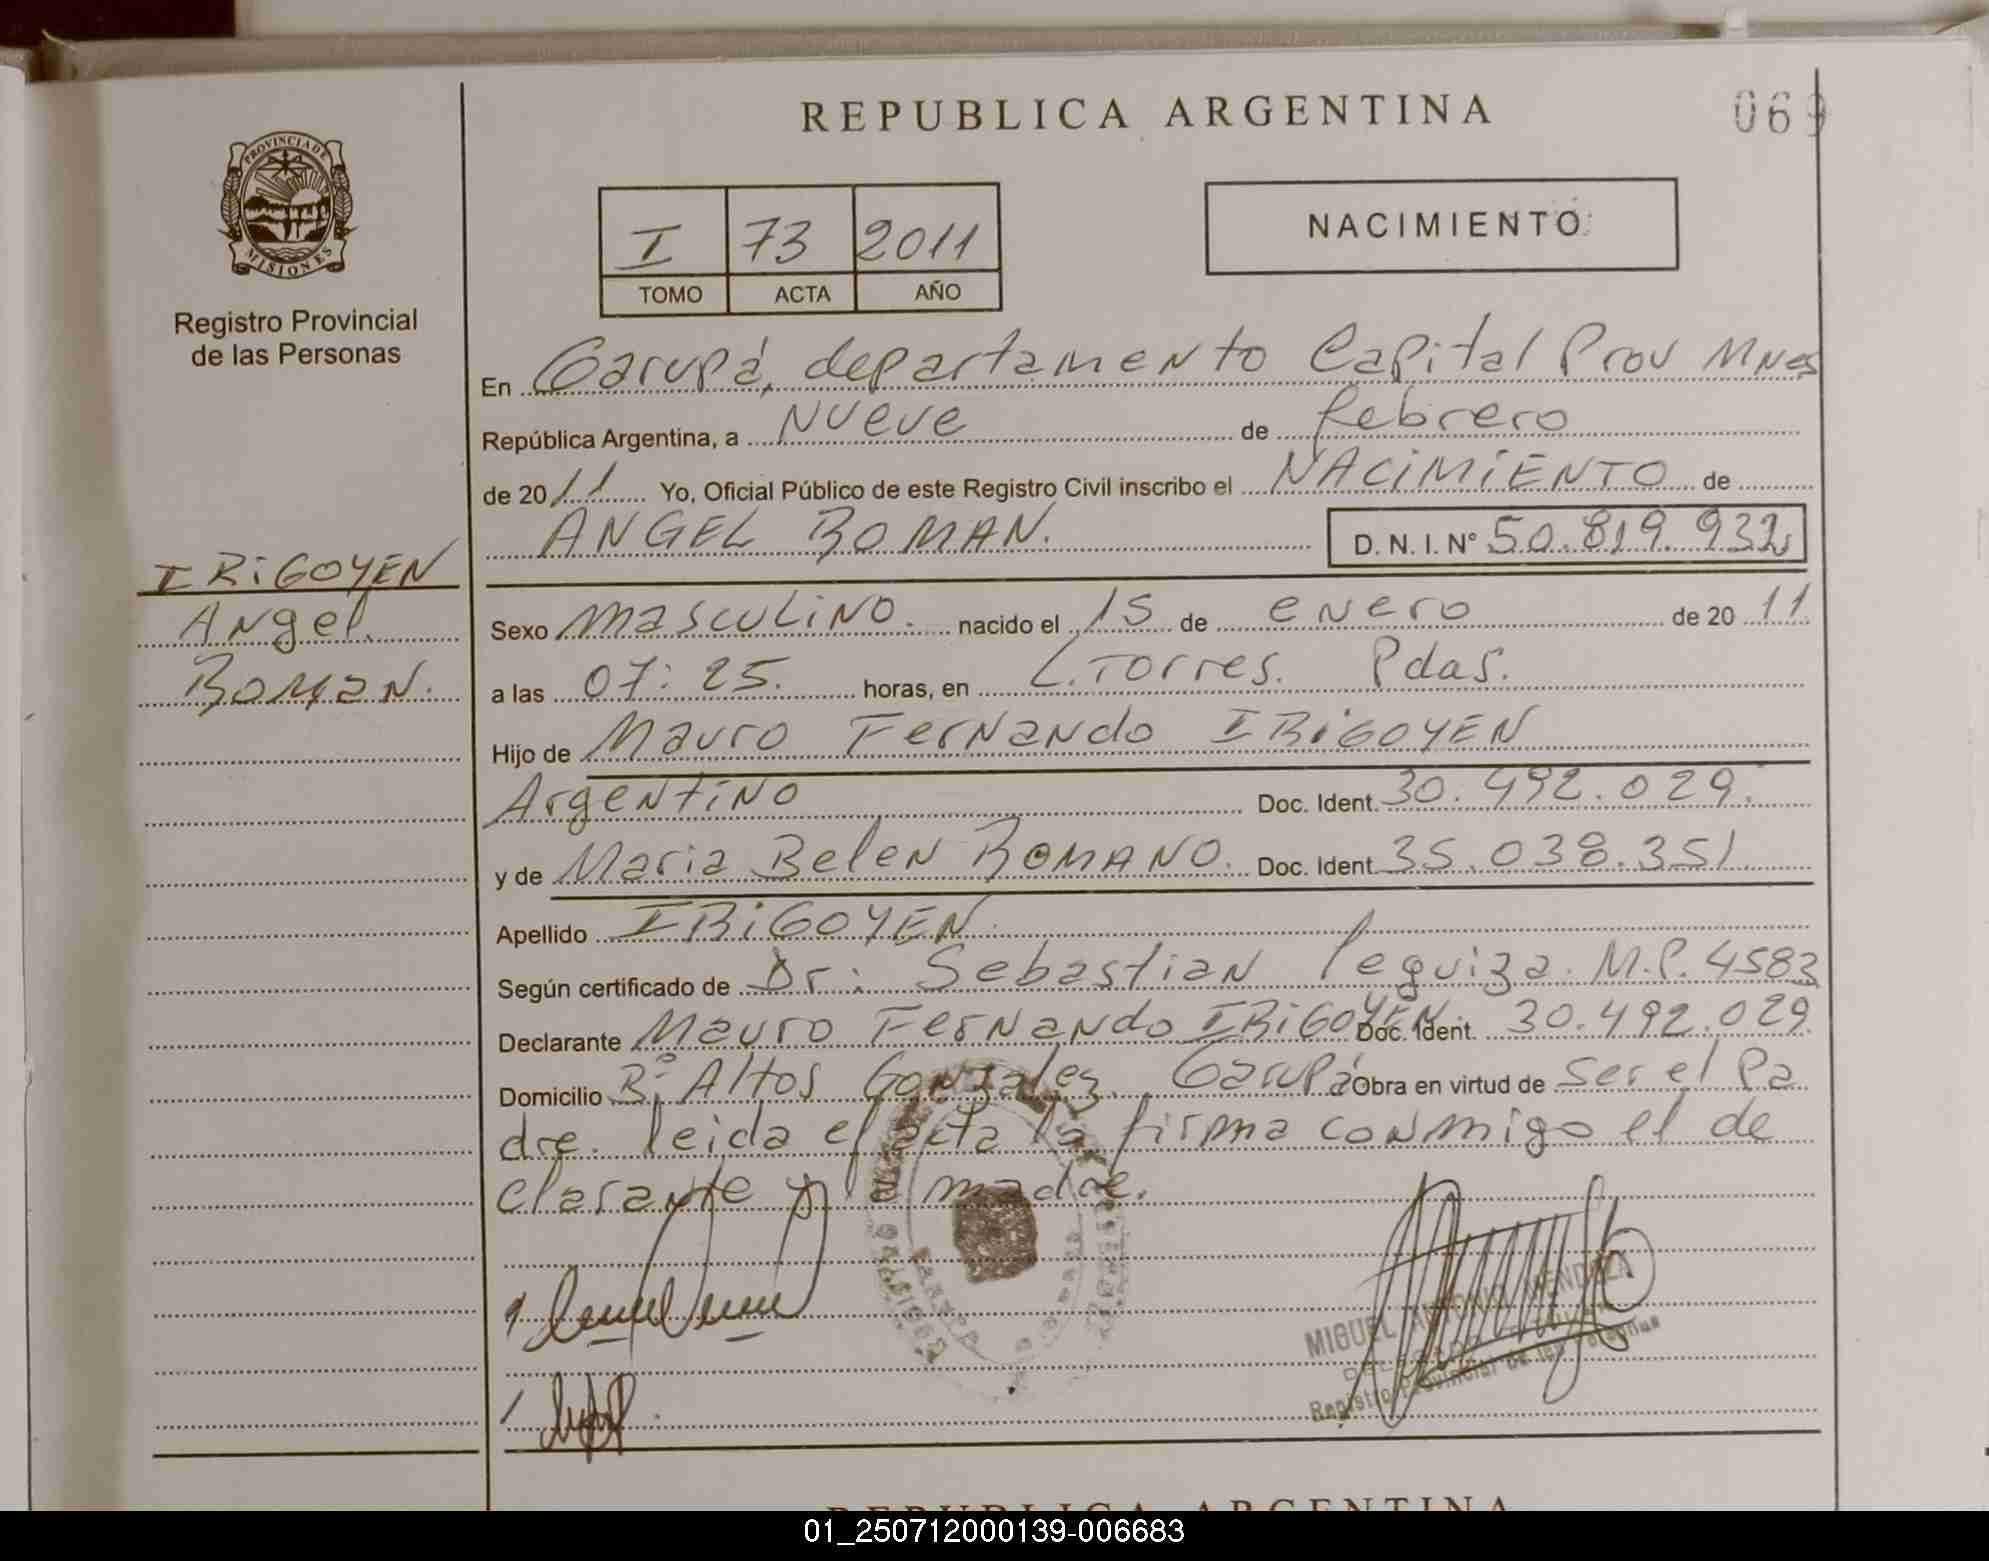 REPUBLICA ARGENTINA
069
PROVINCIA DE
MISIONES
Registro Provincial
de las Personas
I 73 2011
TOMO ACTA AÑO
NACIMIENTO
En Garupá, departamento Capital Prov Mnes
República Argentina, a Nueve de febrero
de 2011 Yo, Oficial Público de este Registro Civil inscribo el NACIMIENTO de
ANGEL ROMAN. D. N. I. N° 50.819.932
IRIGOYEN
Angel
Roman.
Sexo masculino. nacido el 15 de enero de 2011
a las 07:25. horas, en L. Torres. Pdas.
Hijo de Mauro Fernando IRIGOYEN
Argentino Doc. Ident. 30.492.029.
y de Maria Belen ROMANO. Doc. Ident. 35.038.351
Apellido IRIGOYEN.
Según certificado de Dr: Sebastian Leguiza. M.P. 4583
Declarante Mauro Fernando IRIGOYEN. Doc. Ident. 30.492.029
Domicilio B° Altos Gonzalez. Garupá Obra en virtud de ser el Pa
dre. leida el acta la firma conmigo el de
clarante y la madre.
MIGUEL ANTONIO MENDOZA
Registro Provincial de las Personas
REPUBLICA ARGENTINA
01_250712000139-006683